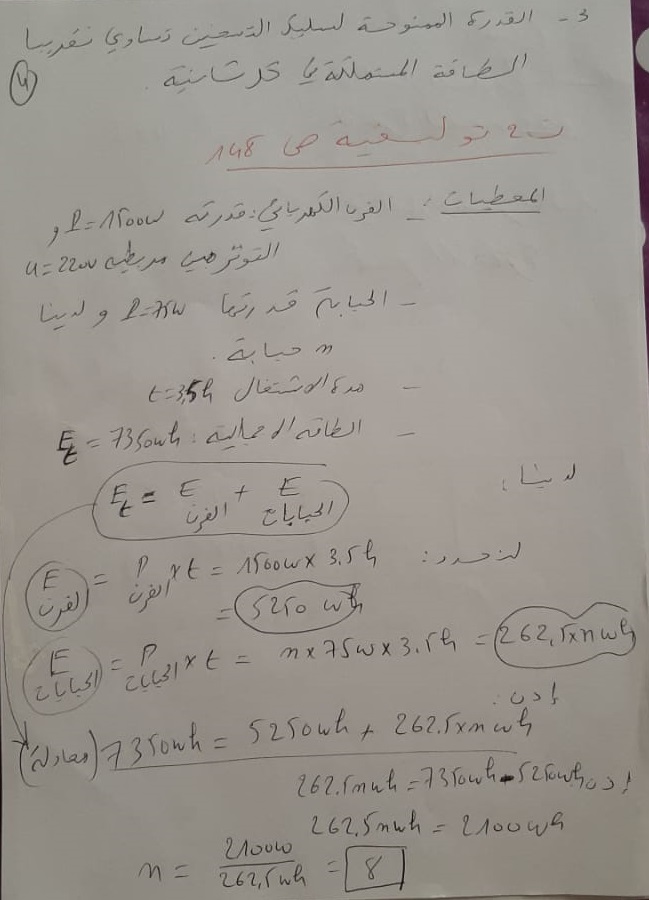 3- القدرة الممنوحة لسلك التسخين تساوي تقريبا
الطاقة المستهلكة في كل ثانية.
4
ت2 توليفية ص 148
المعطيات: - الفرن الكهربائي: قدرته P=1500W و
التوتر بين مربطيه u=220V
- الحبابة قدرتها P=75W و لدينا
n حبابة.
- مدة الاشتغال t=3,5h
- الطاقة الاجمالية: Et = 7350wh
لدينا:
Et = E الفرن + E الحبابات
لنحدد: E الفرن = P الفرن × t = 1500W × 3.5h
= 5250 wh
E الحبابات = P الحبابات × t = n × 75W × 3.5h = 262,5×n wh
إذن:
(معادلة) 7350wh = 5250wh + 262.5×n wh
إذن 262.5nwh = 7350wh - 5250wh
262,5nwh = 2100wh
n = 2100w / 262,5wh = 8